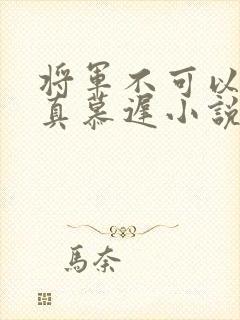 将軍不可以
真慕遲小説
馬奈